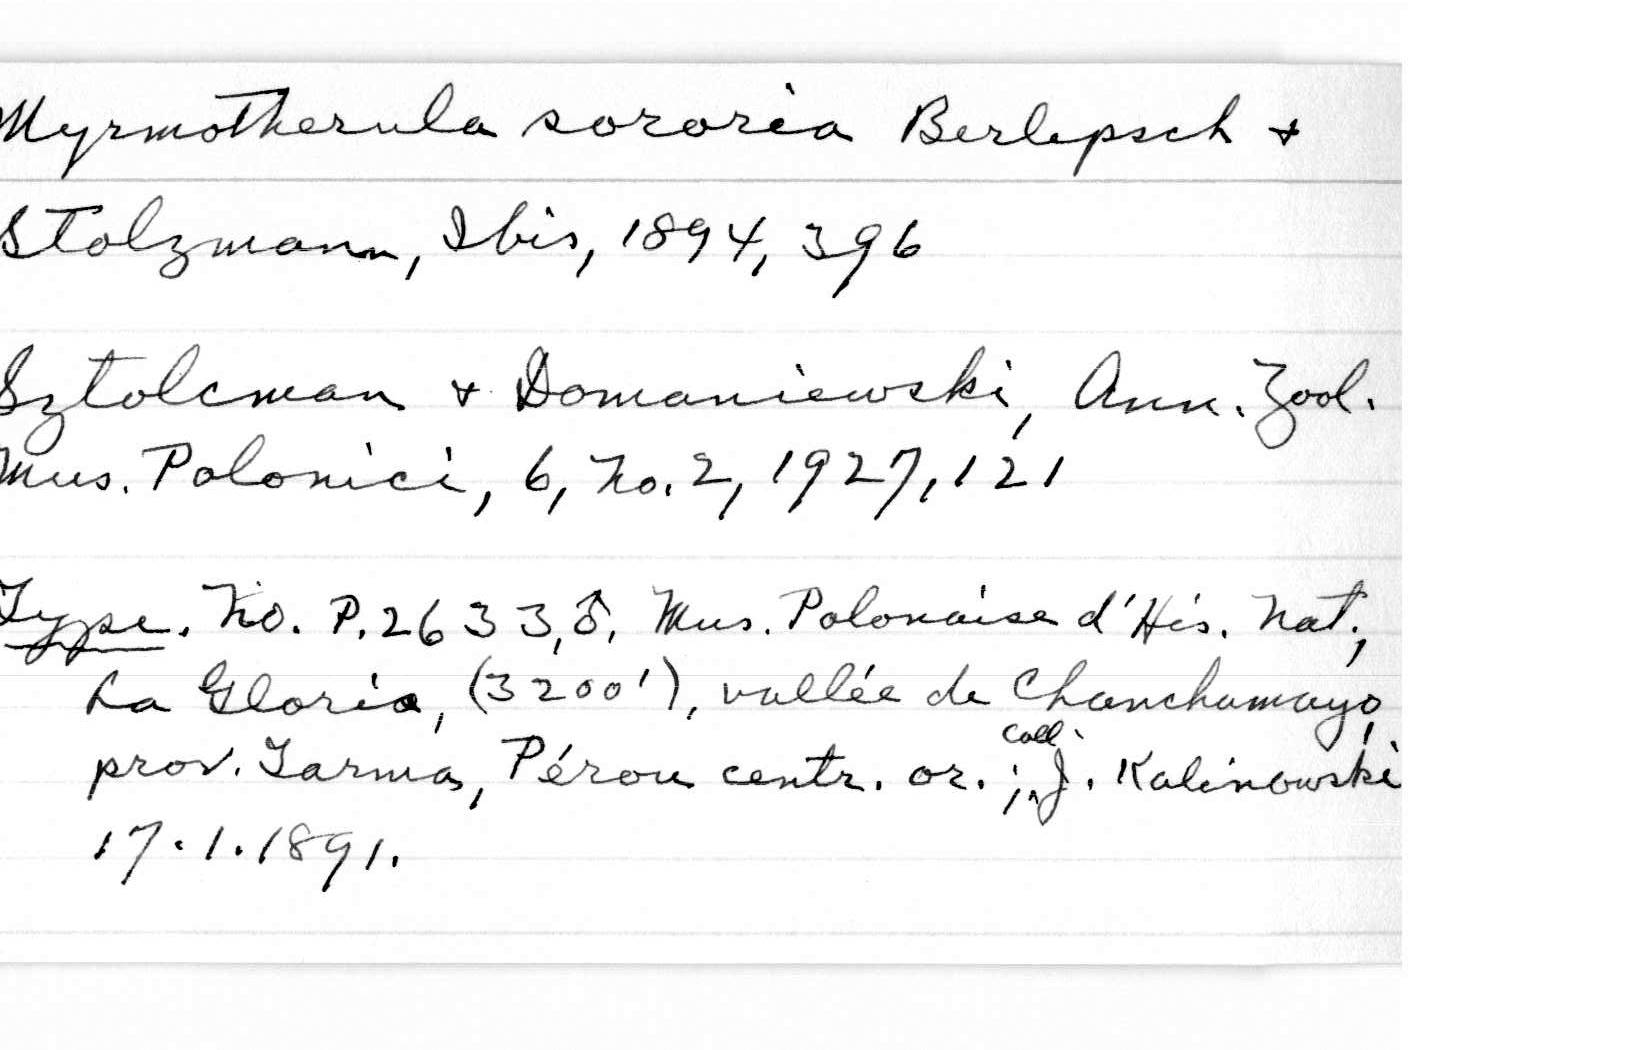 Myrmotherula sororia Berlepsch &
Stolzmann, Ibis, 1894, 396
Sztolcman & Domaniewski, Ann. Zool.
Mus. Polonici, 6, No. 2, 1927, 121
Type. No. P.2633, ♂, Mus. Polonaise d'His. Nat.,
La Gloria, (3200'), vallée de Chanchamayo,
prov. Tarma, Pérou centr. or.; coll. J. Kalinowski
17.1.1891.